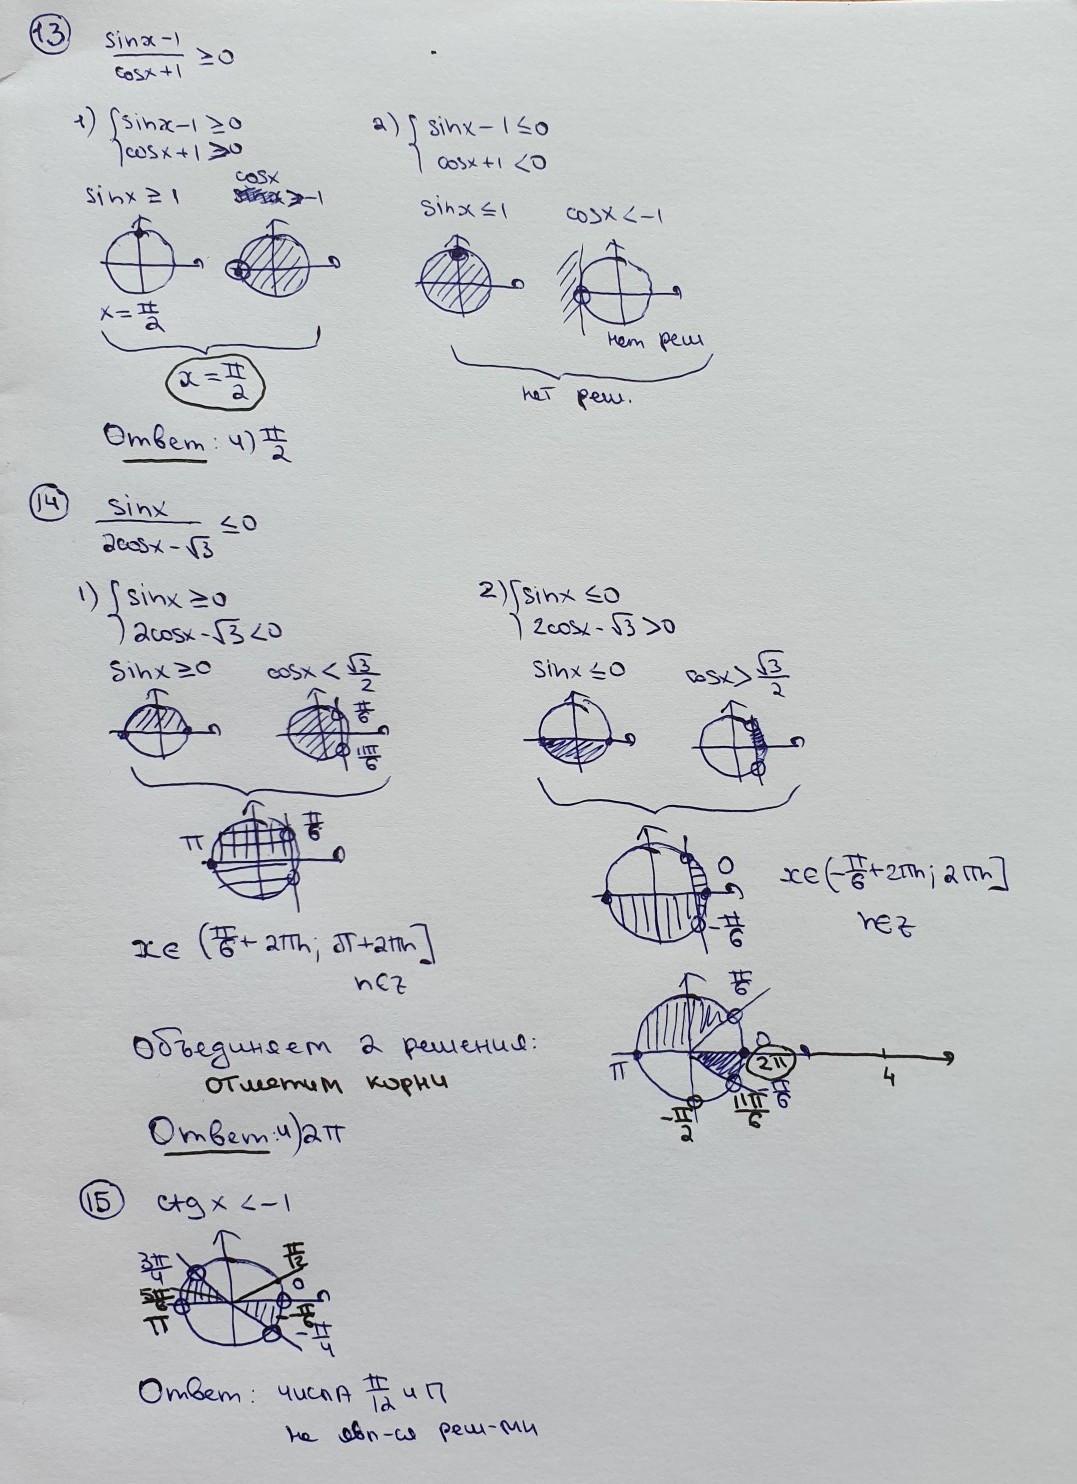 13
sinx-1
cosx+1
≥0
1) { sinx-1 ≥ 0
cosx+1 > 0
sinx ≥ 1
cosx > -1
x = π/2
x = π/2
2) { sinx - 1 ≤ 0
cosx+1 < 0
sinx ≤ 1
cosx < -1
нет реш
нет реш.
Ответ: 4) π/2
14
sinx
2cosx-√3
≤0
1) { sinx ≥ 0
2cosx-√3 < 0
sinx ≥ 0
cosx < √3/2
π/6
11π/6
π
π/6
x∈ (π/6 + 2πn; π+2πn]
n∈z
2) { sinx ≤ 0
2cosx-√3 > 0
sinx ≤ 0
cosx > √3/2
0
-π/6
x∈(-π/6+2πn; 2πn]
n∈z
Объединяем 2 решения:
отметим корни
π/6
π
0
2π
4
-π/6
11π/6
-π/2
Ответ: 4) 2π
15
ctg x < -1
3π/4
5π/6
π
π/12
0
-π/6
-π/4
Ответ: числа π/12 и π
не явл-ся реш-ми